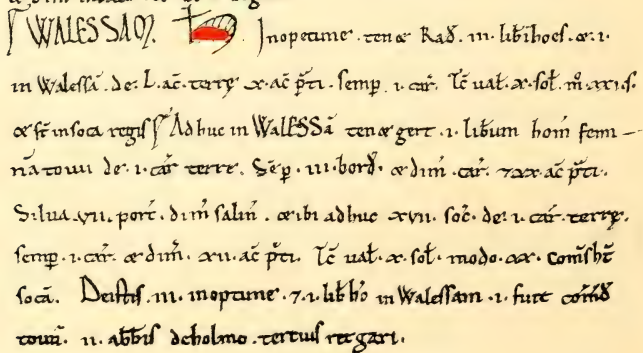 WALESSAM. Inopetune. ten& Rad. III. libihoes. &. I.
in Walessā. de. L. ac. terrę x. ac p̄ti. semp. I. car̄. Tc̄ ual. x. sol. m̊. xxI. s.
& st̄ in soca regis Adhuc in WALESSā ten& gert. I. libum hom̄ femi—
nātouui de. I. car̄ terre. Sēp. III. bord. & dim̄. car̄. 7 xx ac p̄ti.
Silua. vII. porc̄. dim̄ salin̄. & ibi adhuc xvII. soc̄. de. I. car̄. terrę.
semp. I. car̄. & dim̄. xII. ac p̄ti. Tc̄ ual. x. sol. modo. xx. com̄s ht̄
socā. De istis. III. inopetune. 7. I. lib ho in Walessam. I. fuit com̄d
touii. II. abbis de holmo. tertius ret gari.